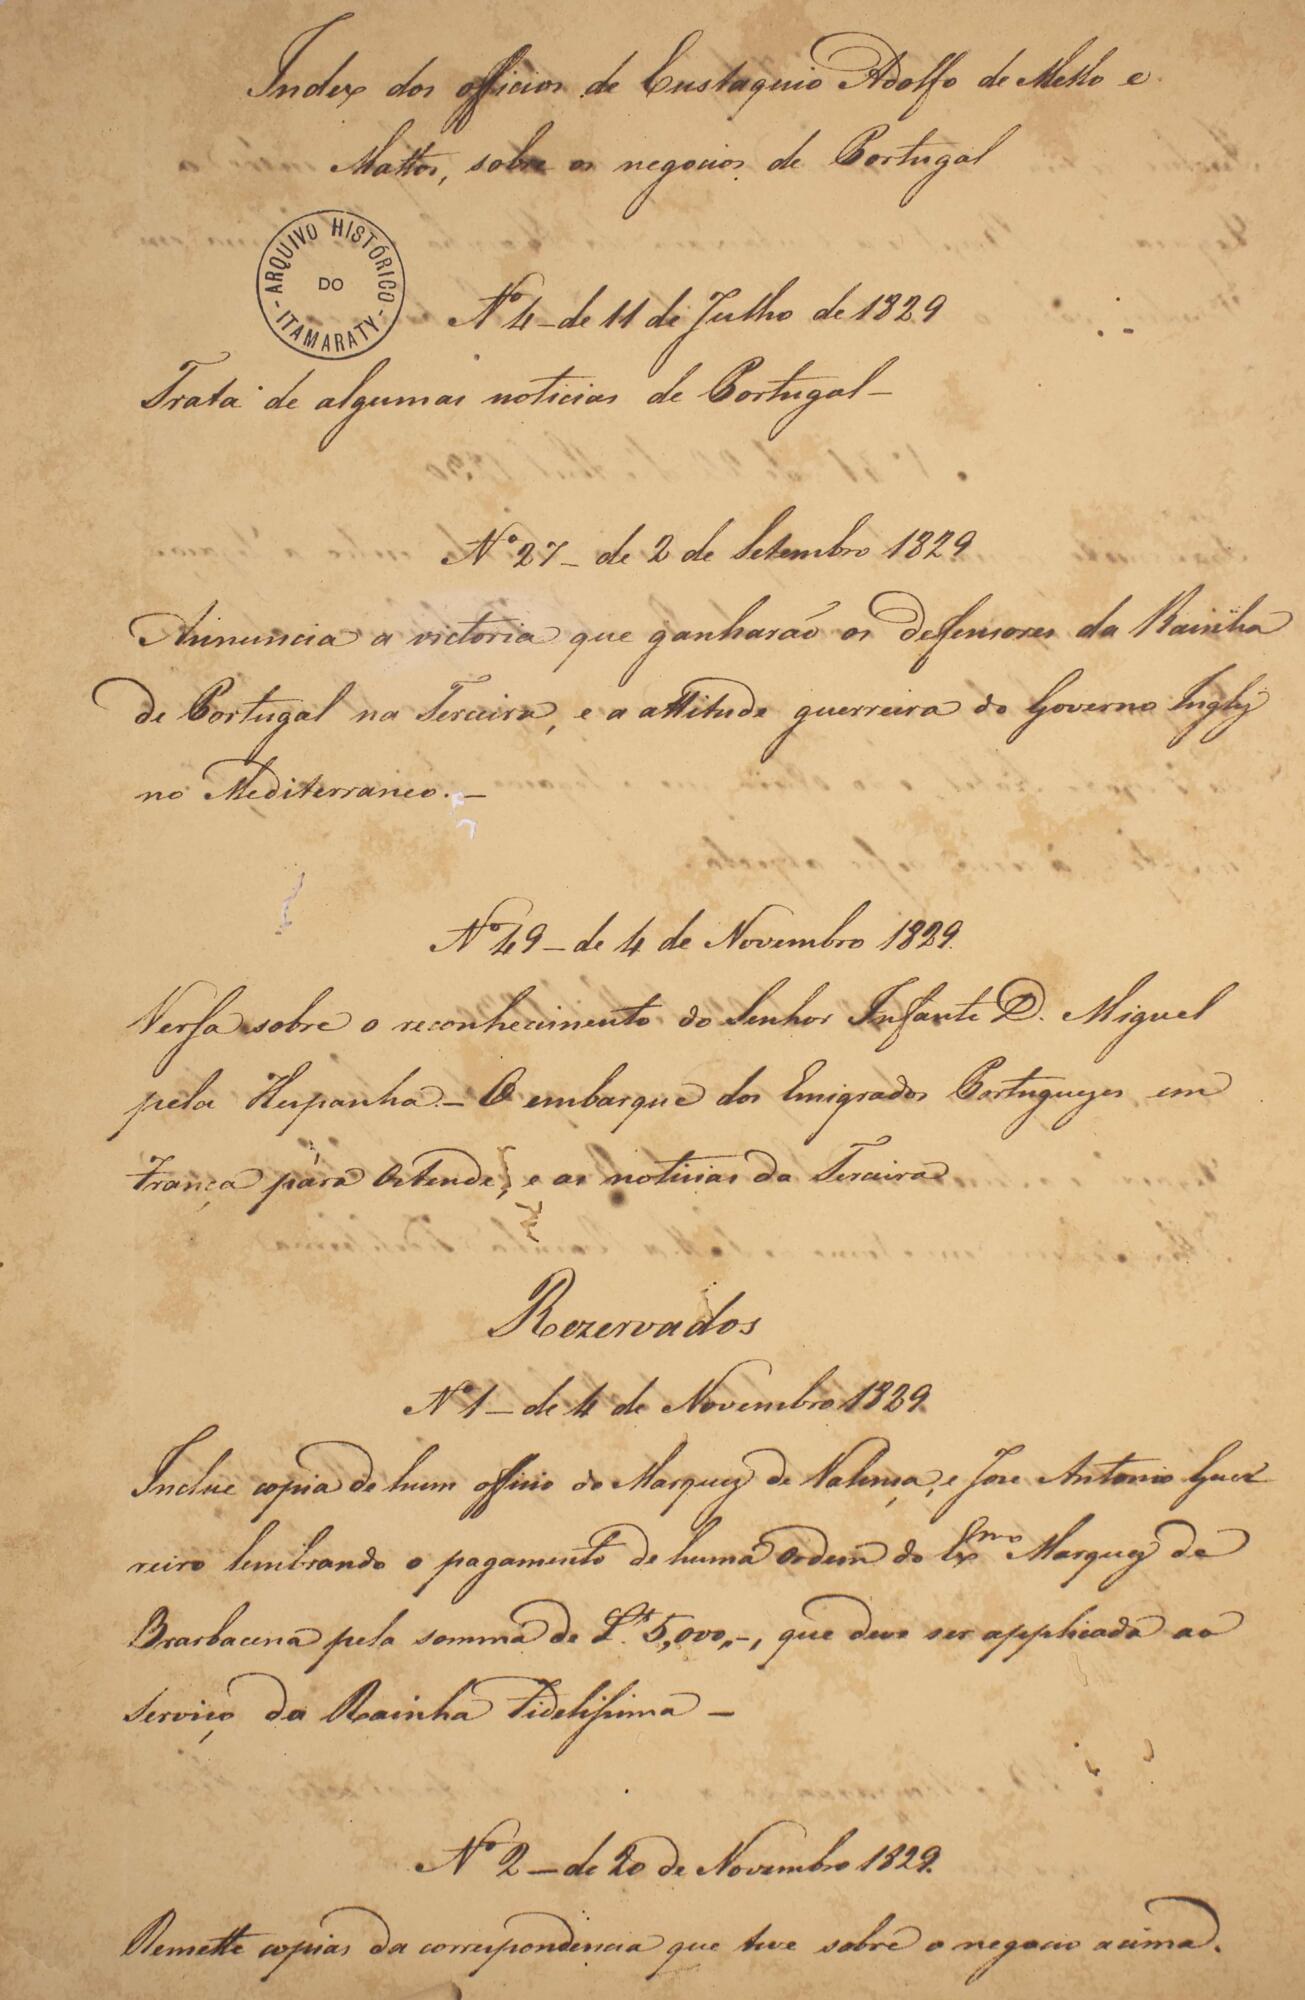 Index dos officios de Eustaquio Adolfo de Mello e
Mattos, sobre os negocios de Portugal
ARQUIVO HISTÓRICO
DO
- ITAMARATY -
Nº 4 - de 11 de Julho de 1829
Trata de algumas noticias de Portugal -
Nº 27 - de 2 de Setembro 1829
Annuncia a victoria que ganharão os defensores da Rainha
de Portugal na Terceira, e a attitude guerreira do Governo Inglez
no Mediterraneo. -
Nº 49 - de 4 de Novembro 1829.
Versa sobre o reconhecimento do Senhor Infante D. Miguel
pela Hespanha - O embarque dos Emigrados Portuguezes em
França para Ostende, e as noticias da Terceira
Rezervados
Nº 1 - de 4 de Novembro 1829.
Inclue copia de hum officio do Marquez de Valença, e Jose Antonio Guer
reiro lembrando o pagamento de huma ordem do Exmo Marquez de
Brarbacena pela somma de £s. 5,000,-, que deve ser applicada ao
serviço da Rainha Fidelissima -
Nº 2 - de 20 de Novembro 1829.
Remette copias da correspondencia que teve sobre o negocio acima.